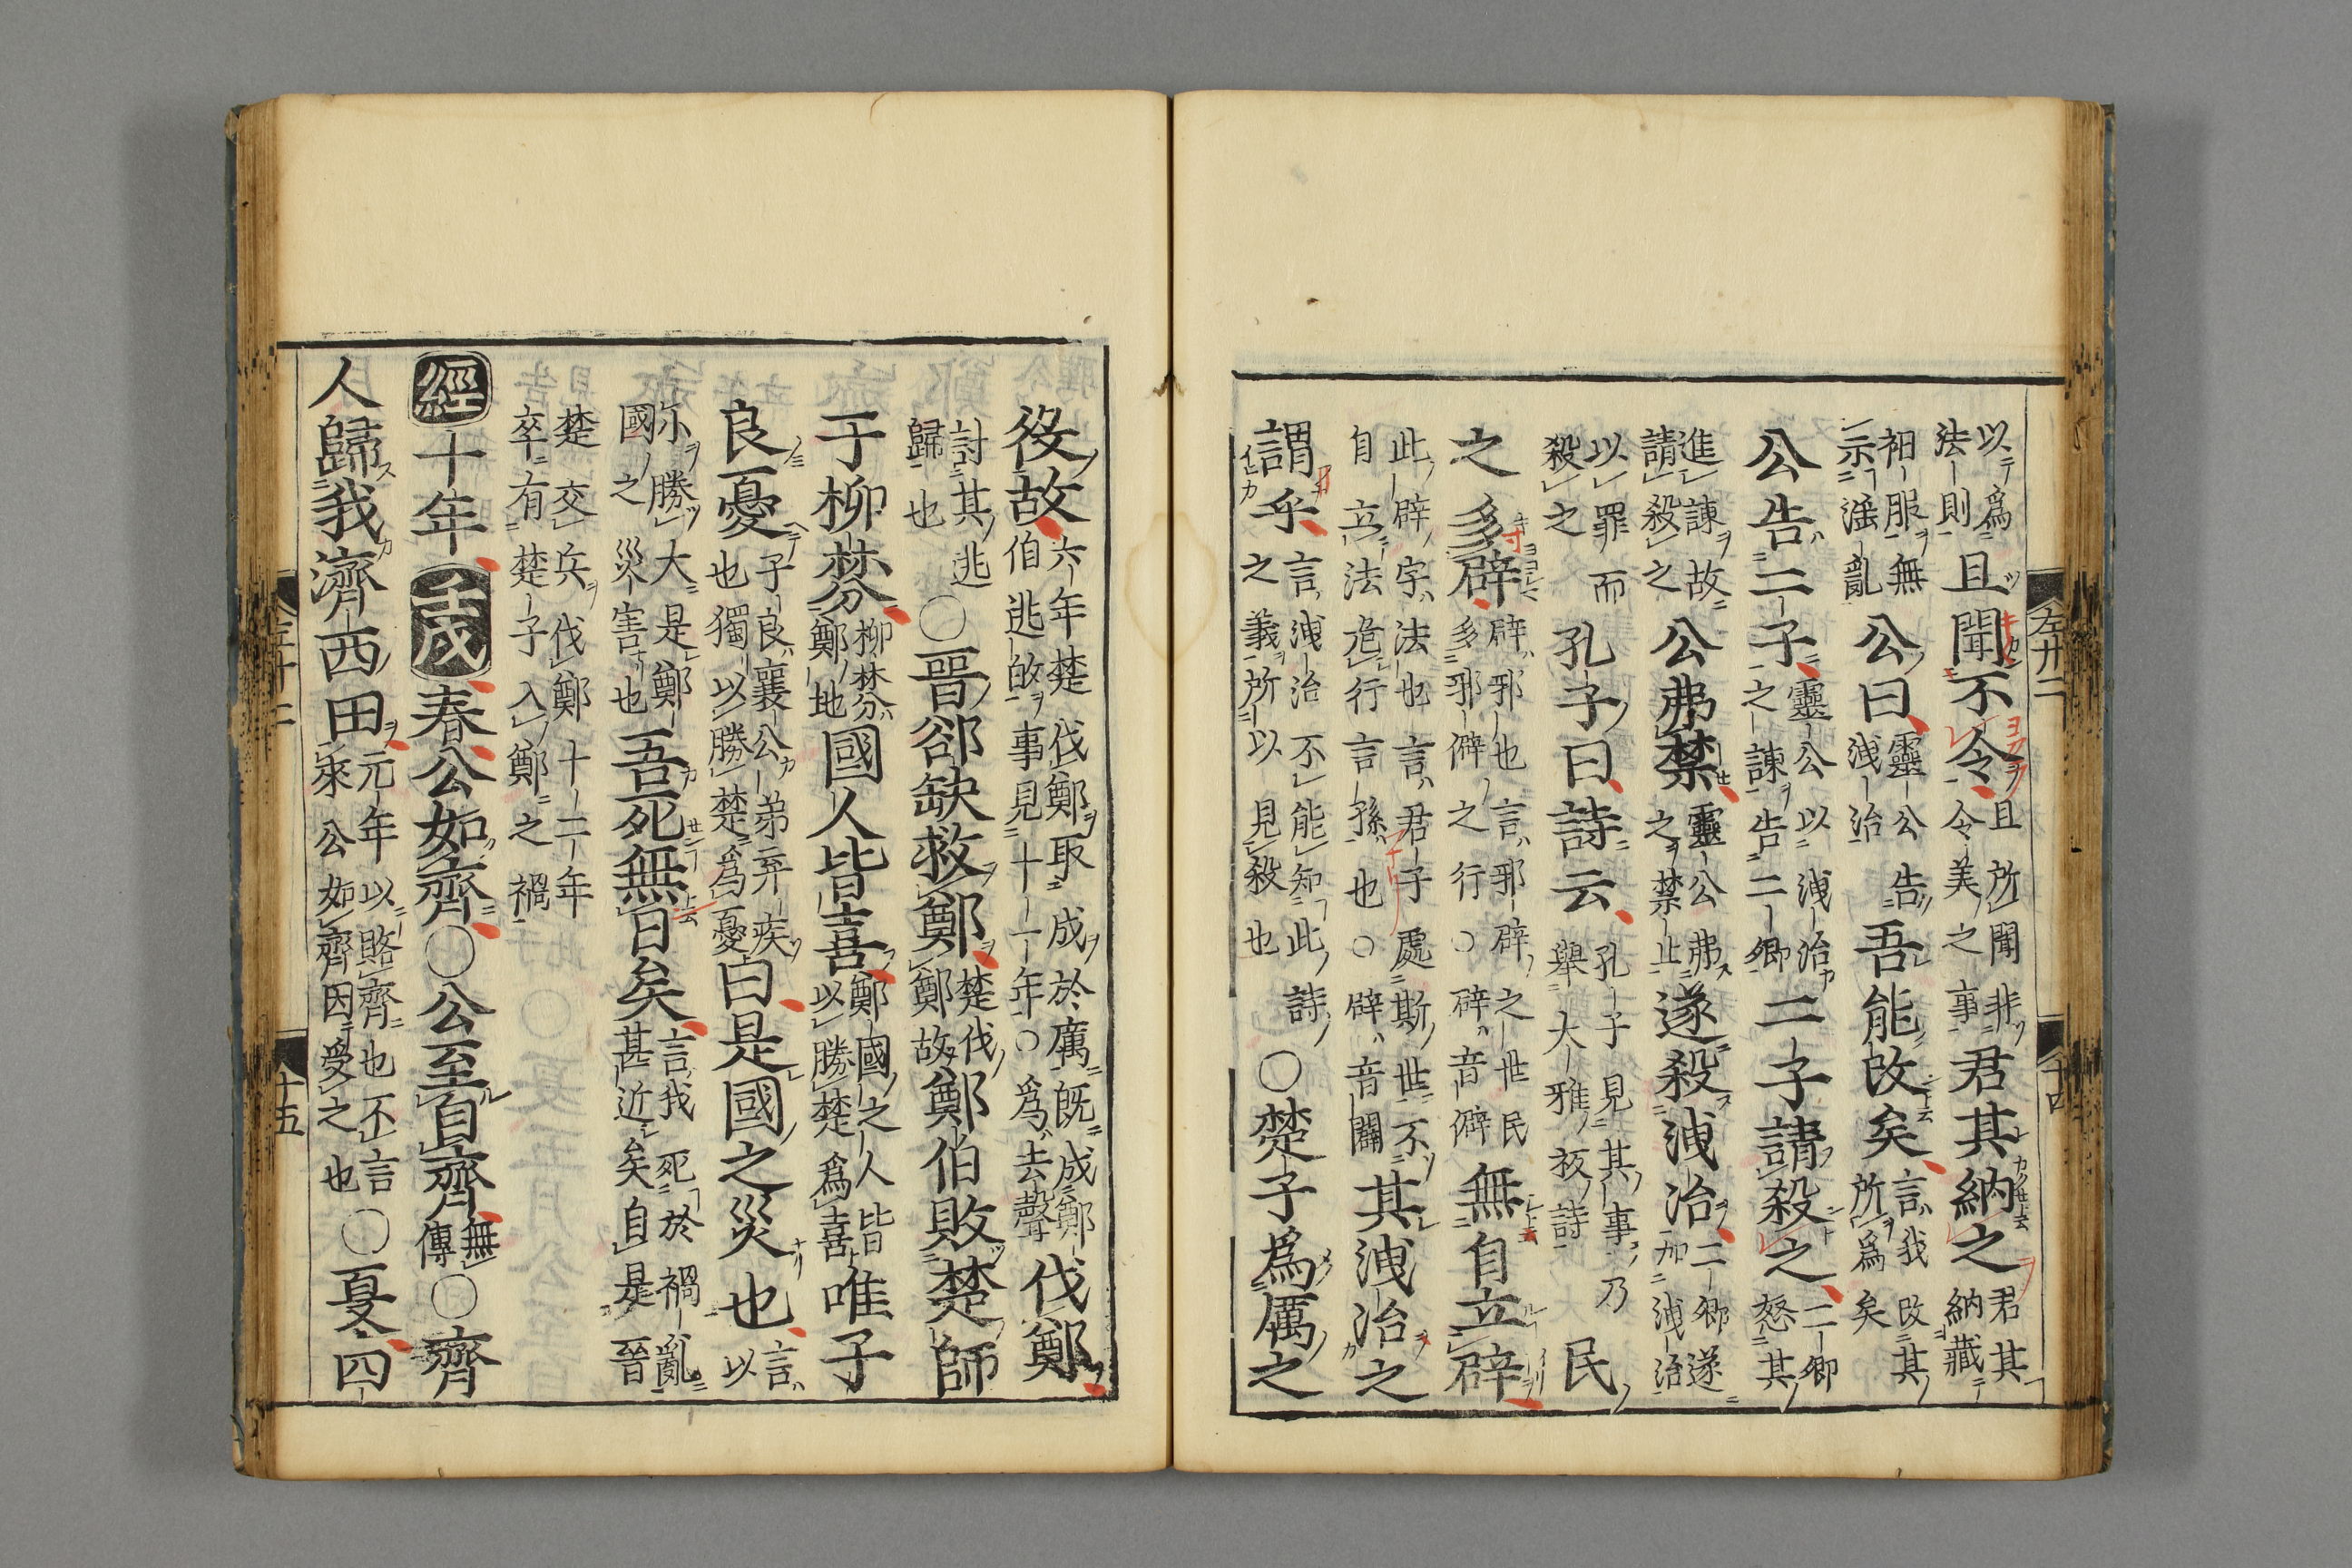 以爲法則且聞不令且所聞非令美之事君其納之君其納藏
衵服無示滛亂公曰靈公告洩治吾能改矣言我改其所爲矣
公告二子靈公以洩治之諫告二卿二子請殺之二卿怒其
進諫故請殺之公弗禁靈公弗之禁止遂殺洩治二卿遂加洩治
以罪而殺之孔子曰詩云孔子見其事乃舉大雅板詩民
之多辟辟邪也言邪辟之世民多邪僻之行○辟音僻無自立辟
此辟字法也言君子處斯世不自立法危行言孫也○辟音闢其洩治之
謂乎言洩治不能知此詩之義所以見殺也○楚子爲厲之
左廿二
十四
役故六年楚伐鄭取成於厲旣成鄭伯逃故事見十一年○爲去聲伐鄭
討其逃歸也○晉郤缺救鄭楚伐鄭故鄭伯敗楚師
于柳棼柳棼鄭地國人皆喜鄭國之人皆以勝楚爲喜唯子
良憂子良襄公弟弃疾也獨以勝楚爲憂曰是國之災也言以
小勝大是鄭國之災害也吾死無日矣言我死於禍亂甚近矣自是晉
楚交兵伐鄭十二年卒有楚子入鄭之禍
經十年壬戌春公如齊○公至自齊無傳○齊
人歸我濟西田元年以賂齊也不言來公如齊因受之也○夏四
左十二
十五